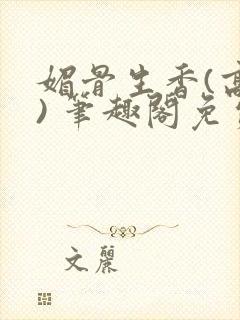 媚骨生香(高
)笔趣阁免费
文麗